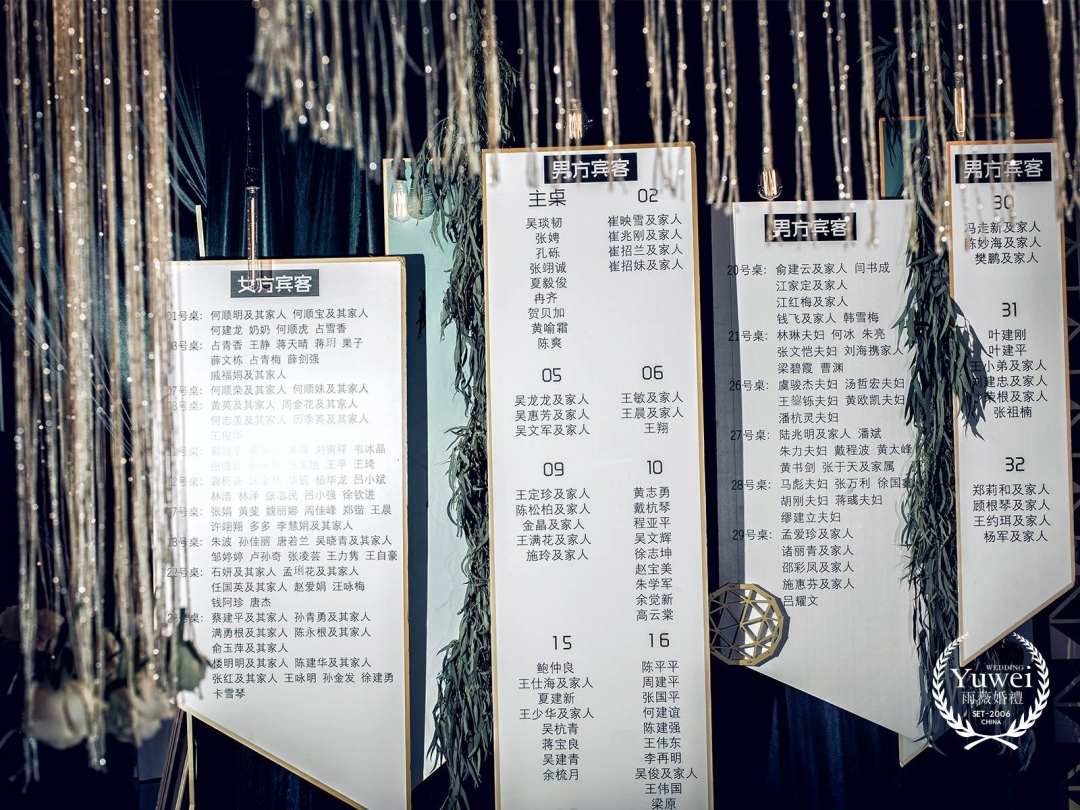 女方宾客
何顺明及其家人 何顺宝及其家人
何建龙 奶奶 何顺虎 占雪香
占青香 王静 蒋天晴 蒋玥 果子
薛文栋 占青梅 薛剑强
戚福娟及其家人
何顺荣及其家人 何顺妹及其家人
黄英及其家人 周金花及其家人
何志圣及其家人 历季英及其家人
王俊华
韦冰晶
王平 王琦
杨华龙 吕小斌
林浩 林泽 民 吕小强 徐钦进
张娟 黄斐 魏丽娜 周佳峰 郑锴 王晨
许翊翔 多多 李慧娟及其家人
朱波 孙佳丽 唐若兰 吴晓青及其家人
邹婷婷 卢孙奇 张凌芸 王力隽 王自豪
22号桌: 石妍及其家人 孟琍花及其家人
任国英及其家人 赵爱娟 汪咏梅
钱阿珍 唐杰
蔡建平及其家人 孙青勇及其家人
满勇根及其家人 陈永根及其家人
俞玉萍及其家人
楼明明及其家人 陈建华及其家人
张红及其家人 王咏明 孙金发 徐建勇
卡雪琴
男方宾客
主桌 02
吴琰韧 崔映雪及家人
张娉 崔兆刚及家人
孔砾 崔招兰及家人
张翊诚 崔招妹及家人
夏毅俊
冉齐
贺贝加
黄喻霜
陈爽
05 06
吴龙龙及家人 王敏及家人
吴惠芳及家人 王晨及家人
吴文军及家人 王翔
09 10
王定珍及家人 黄志勇
陈松柏及家人 戴杭琴
金晶及家人 程亚平
王满花及家人 吴文辉
施玲及家人 徐志坤
赵宝美
朱学军
余觉新
高云棠
15 16
鲍仲良 陈平平
王仕海及家人 周建平
夏建新 张国平
王少华及家人 何建谊
吴杭青 陈建强
蒋宝良 王伟东
吴建青 李再明
余梳月 吴俊及家人
王伟国
梁原
男方宾客
20号桌: 俞建云及家人 闫书成
江家定及家人
江红梅及家人
钱飞及家人 韩雪梅
21号桌: 林琳夫妇 何冰 朱亮
张文恺夫妇 刘海携家人
梁碧霞 曹渊
26号桌: 虞骏杰夫妇 汤哲宏夫妇
王鋆铄夫妇 黄欧凯夫妇
潘杭灵夫妇
27号桌: 陆兆明及家人 潘斌
朱力夫妇 戴程波 黄太峰
黄书剑 张于天及家属
28号桌: 马彪夫妇 张万利 徐国鑫
胡刚夫妇 蒋彧夫妇
缪建立夫妇
29号桌: 孟爱珍及家人
诸丽青及家人
邵彩凤及家人
施惠芬及家人
吕耀文
男方宾客
30
冯走新及家人
陈妙海及家人
樊鹏及家人
31
叶建刚
叶建平
王小弟及家人
建忠及家人
荣根及家人
张祖楠
32
郑莉和及家人
顾根琴及家人
王约珥及家人
杨军及家人
WEDDING
Yuwei
雨薇婚禮
SET-2006
CHINA